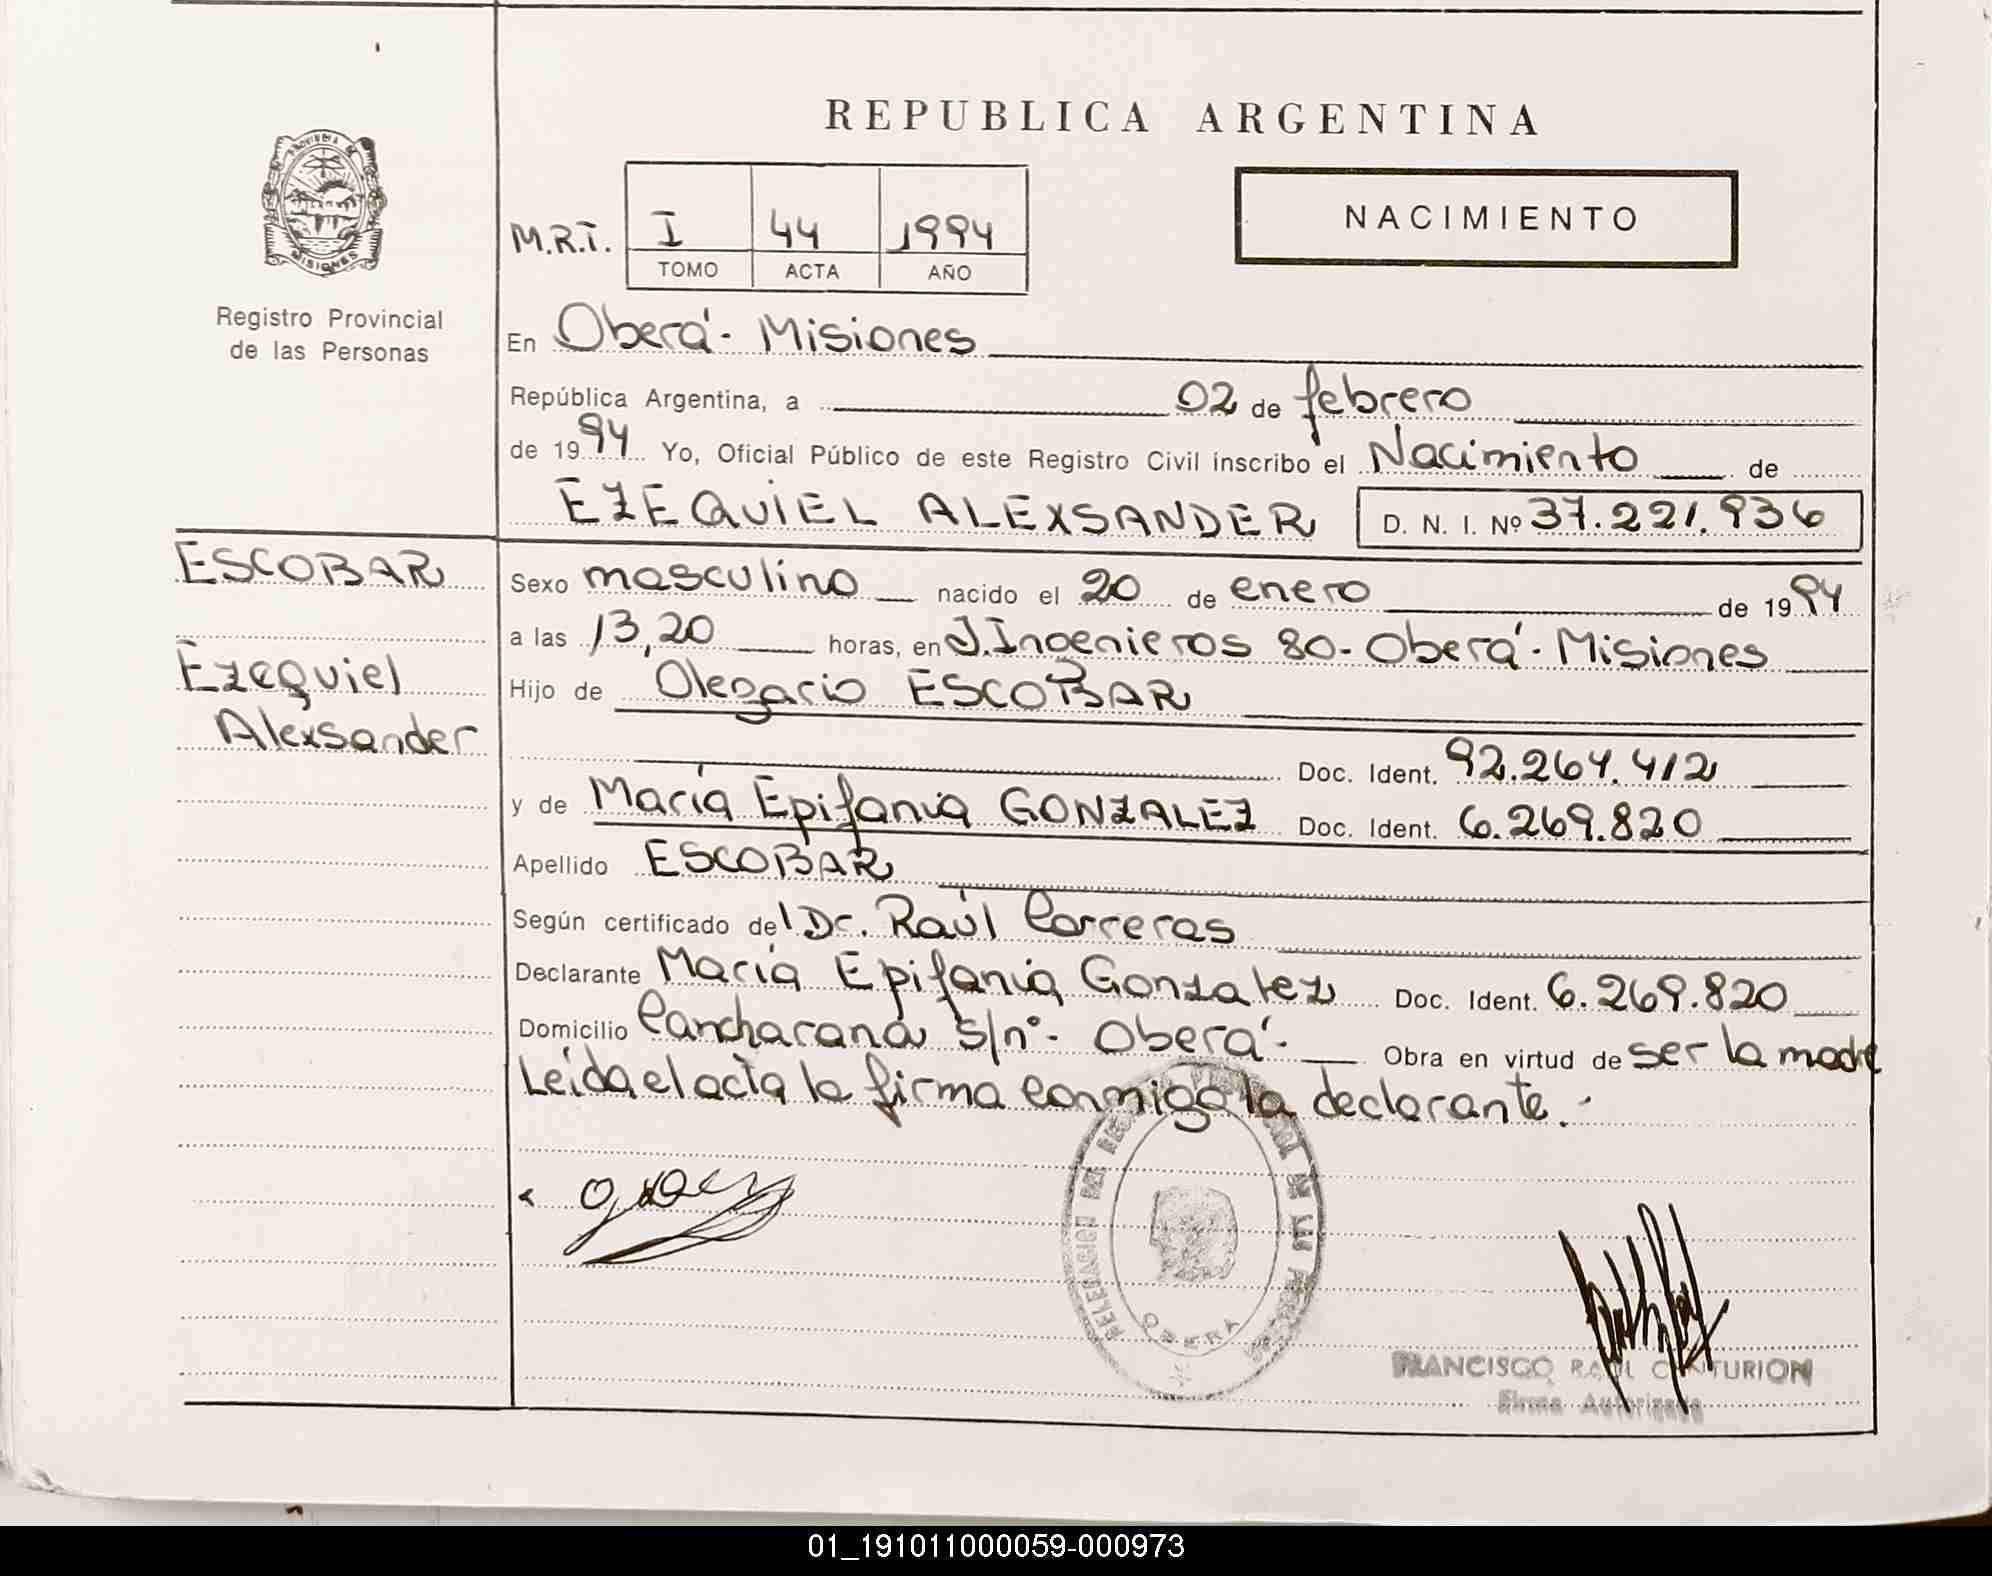 REPUBLICA ARGENTINA
PROVINCIA DE
MISIONES
Registro Provincial
de las Personas
M.R.T. I 44 1994
TOMO ACTA AÑO
NACIMIENTO
En Oberá - Misiones
República Argentina, a 02 de febrero
de 1994 Yo, Oficial Público de este Registro Civil inscribo el Nacimiento de
EZEQUIEL ALEXSANDER D. N. I. Nº 37.221.936
ESCOBAR
Ezequiel
Alexsander
Sexo masculino nacido el 20 de enero de 1994
a las 13,20 horas, en J. Ingenieros 80 - Oberá - Misiones
Hijo de Olegario ESCOBAR
Doc. Ident. 92.264.412
y de María Epifania GONZALEZ Doc. Ident. 6.269.820
Apellido ESCOBAR
Según certificado del Dr. Raúl Carreras
Declarante María Epifania Gonzalez Doc. Ident. 6.269.820
Domicilio s/nº - Oberá - Obra en virtud de ser la madre
Leída el acta la firma conmigo la declarante.-
DELEGACION DEL DE LAS PERSONAS
OBERA
FRANCISCO RAUL CENTURION
Firma Autorizada
01_191011000059-000973